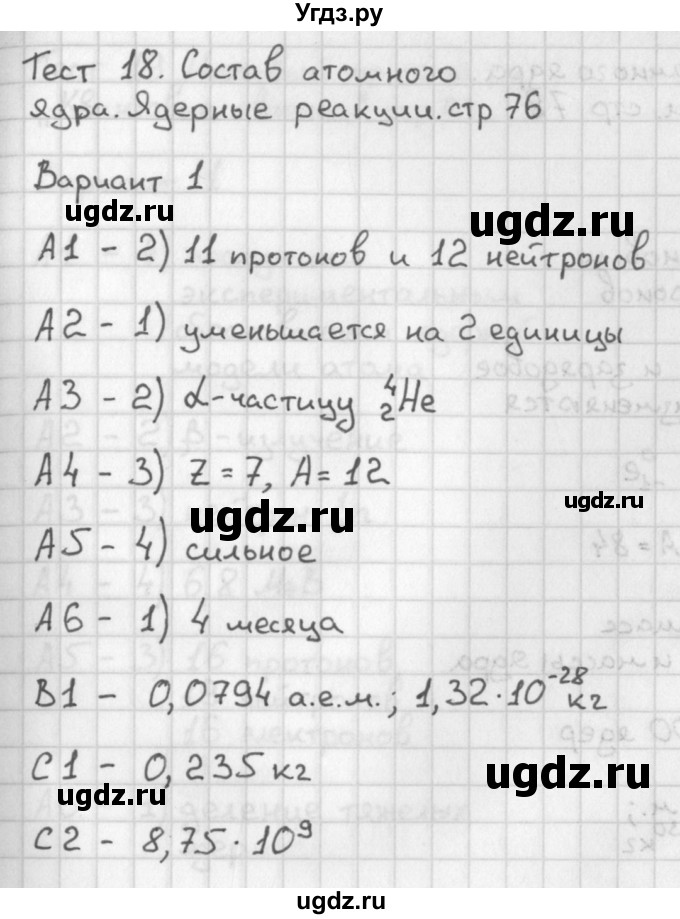 Угдз.ру
Тест 18. Состав атомного
ядра. Ядерные реакции. стр 76
Вариант 1
ugdz.ru
ugdz.ru
А1 - 2) 11 протонов и 12 нейтронов
А2 - 1) уменьшается на 2 единицы
А3 - 2) α-частицу ⁴₂He
А4 - 3) Z = 7, A = 12
ugdz.ru
ugdz.ru
А5 - 4) сильное
А6 - 1) 4 месяца
В1 - 0,0794 а.е.м.; 1,32·10⁻²⁸ кг
С1 - 0,235 кг
ugdz.ru
ugdz.ru
С2 - 8,75·10⁹
ugdz.ru